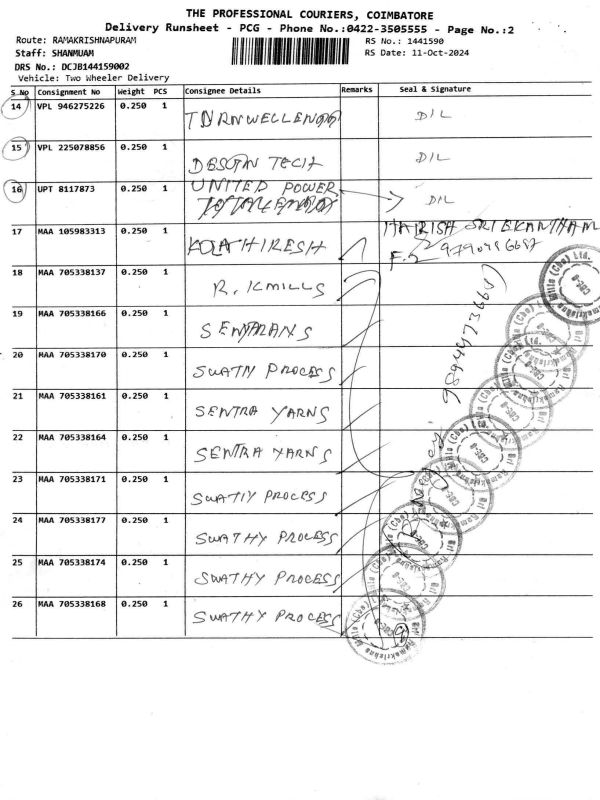 THE PROFESSIONAL COURIERS, COIMBATORE
Delivery Runsheet - PCG - Phone No.:0422-3505555 - Page No.:2
Route: RAMAKRISHNAPURAM RS No.: 1441590
Staff: SHANMUAM RS Date: 11-Oct-2024
DRS No.: DCJB144159002
Vehicle: Two Wheeler Delivery
S No Consignment No Weight PCS Consignee Details Remarks Seal & Signature
14 VPL 946275226 0.250 1 DIL
15 VPL 225078856 0.250 1 TECH DIL
16 UPT 8117873 0.250 1 UNITED POWER DIL
17 MAA 105983313 0.250 1 HARISH SRIEKANTHAM
18 MAA 705338137 0.250 1 R.K MILLS
19 MAA 705338166 0.250 1
20 MAA 705338170 0.250 1 SWATHY PROCESS
21 MAA 705338161 0.250 1 SENTRA YARNS
22 MAA 705338164 0.250 1 SENTRA YARNS
23 MAA 705338171 0.250 1 SWATHY PROCESS
24 MAA 705338177 0.250 1 SWATHY PROCESS
25 MAA 705338174 0.250 1 SWATHY PROCESS
26 MAA 705338168 0.250 1 SWATHY PROCESS
Sri Ramakrishna Mills (Cbe) Ltd.
CBE-6